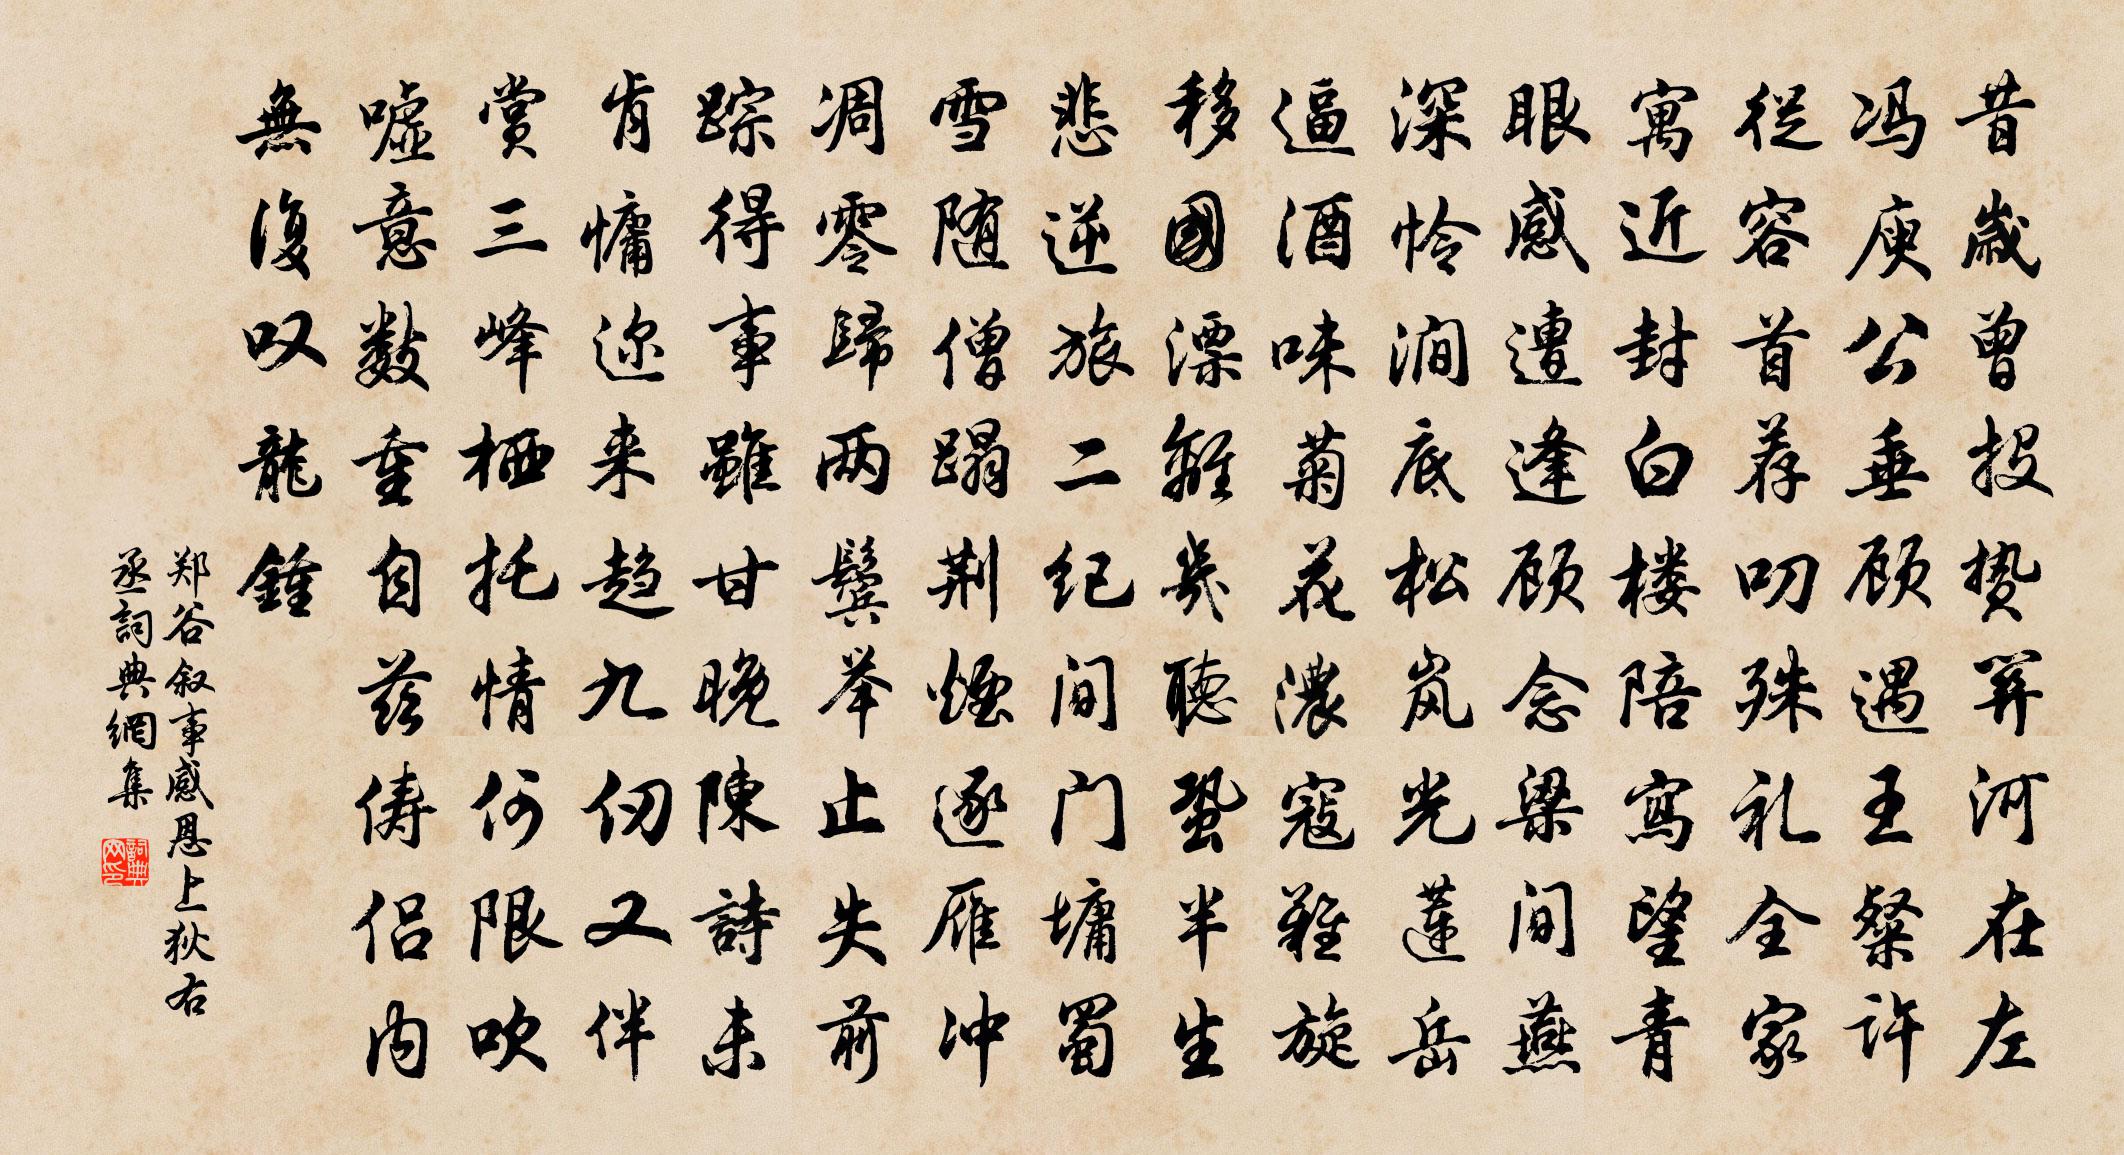 昔歲曾投贄關河在左
冯庾公垂顾遇王粲许
從容首荐叨殊礼全家
寓近封白楼陪寫望青
眼感遭逢顾念梁间燕
深怜涧底松岚光莲岳
逼酒味菊花濃寇難旋
移國漂離幾聽蛩半生
悲逆旅二纪间门墉蜀
雪随僧蹋荆煙逐雁冲
凋零歸两鬓举止失前
踪得事雖甘晚陳詩未
肯慵迩来趋九仞又伴
赏三峰栖托情何限吹
嘘意数重自兹俦侣内
無復叹龍鍾
郑谷叙事感恩上狄右
丞詞典網集
詞典网印